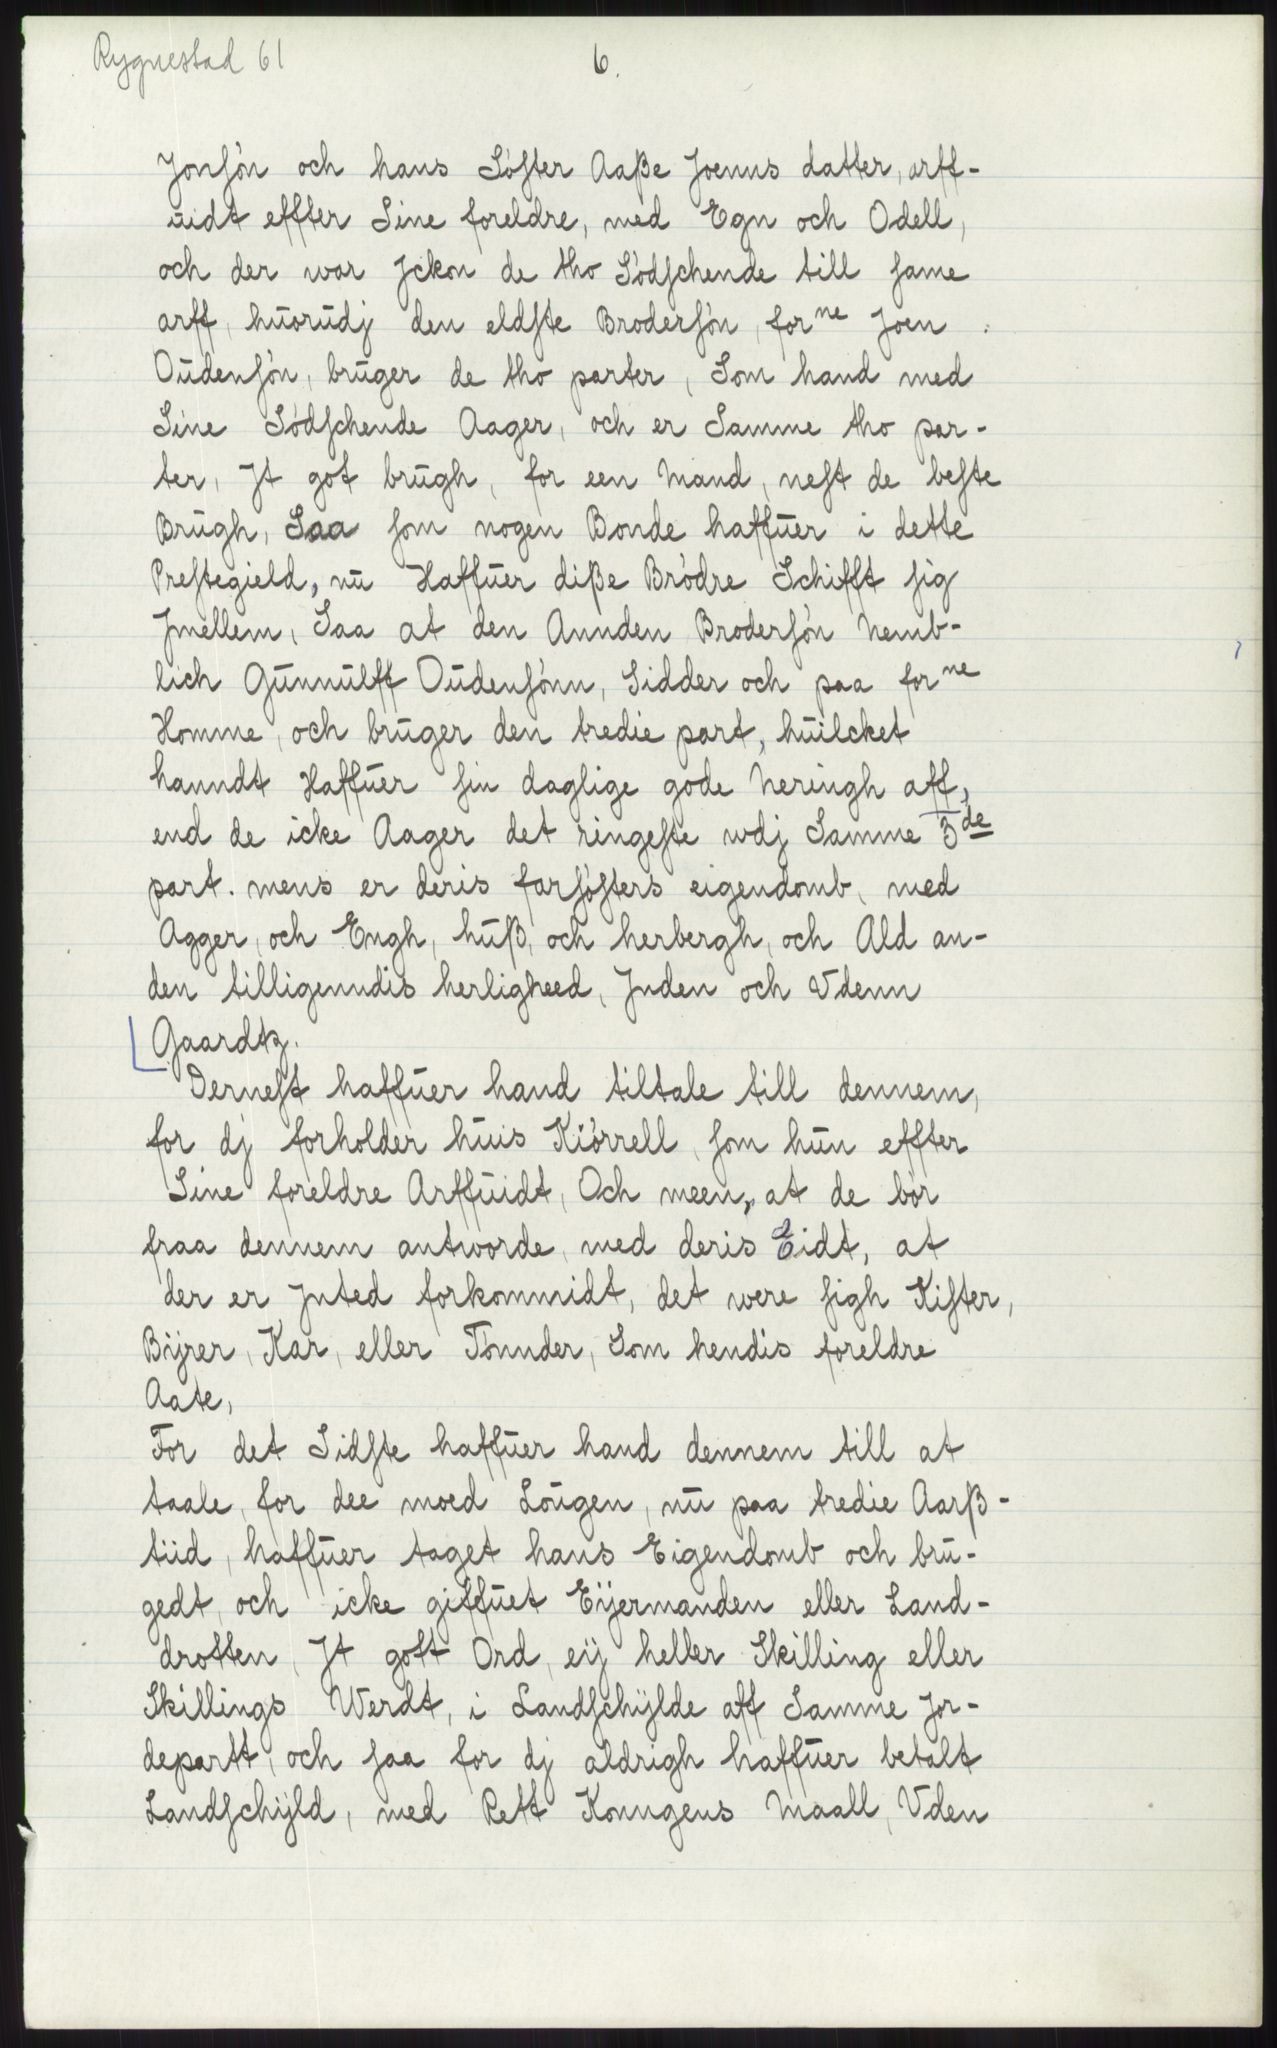 Rygnestad 61
6.
Jonsön och hans Söster Aaße Joenns datter, arff-
uidt effter Sine foreldre, med Egn och Odell,
och der war Jckon de tho Södschende till same
arff, huorudj den eldste Brodersön, forne Joen
Oudensön, bruger de tho parter, Som hand med
Sine Södschende Aager, och er Samme tho par-
ter, Jt got brugh, for een Mand, nest de beste
Brugh, Saa som nogen Bonde haffuer i dette
Prestegield, nu Haffuer diße Brödre Schifft sig
Jmellem, Saa at den Annden Brodersön Nemb-
lich Gunnulff Oudensönn, Sidder och paa forne
Homme, och bruger den tredie part, huilcket
hanndt Haffuer sin daglige gode Neringh aff,
end de icke Aager det ringeste wdj Samme 3de
part. mens er deris farsösters eigendomb, med
Agger, och Engh, huß, och herbergh, och Ald an-
den tilligenndis herligheed, Jnden och Vdenn
Gaardtz.
Dernest haffuer hand tiltale till dennem,
for dj forholder huis Kiörrell, som hun effter
Sine foreldre Arffuidt, Och meen, at de bör
fraa dennem antworde, med deris Eidt, at
der er Jnted forkommidt, det were sigh Kister,
Bÿrer, Kar, eller Tönnder, Som hendis foreldre
Aate,
For det Sidste haffuer hand dennem till at
taale, for dee moed Lougen, nu paa tredie Aarß-
tiid, haffuer taget hans Eigendomb och bru-
gedt, och icke giffuet Eÿermanden eller Land-
drotten, Jt gott Ord, eÿ heller Skilling eller
Skillings Werdt, i Landschÿlde aff Samme Jor-
departt, och saa for dj aldrigh haffuer betalt
Landschÿld, med Rett Konngens Maall, Vden